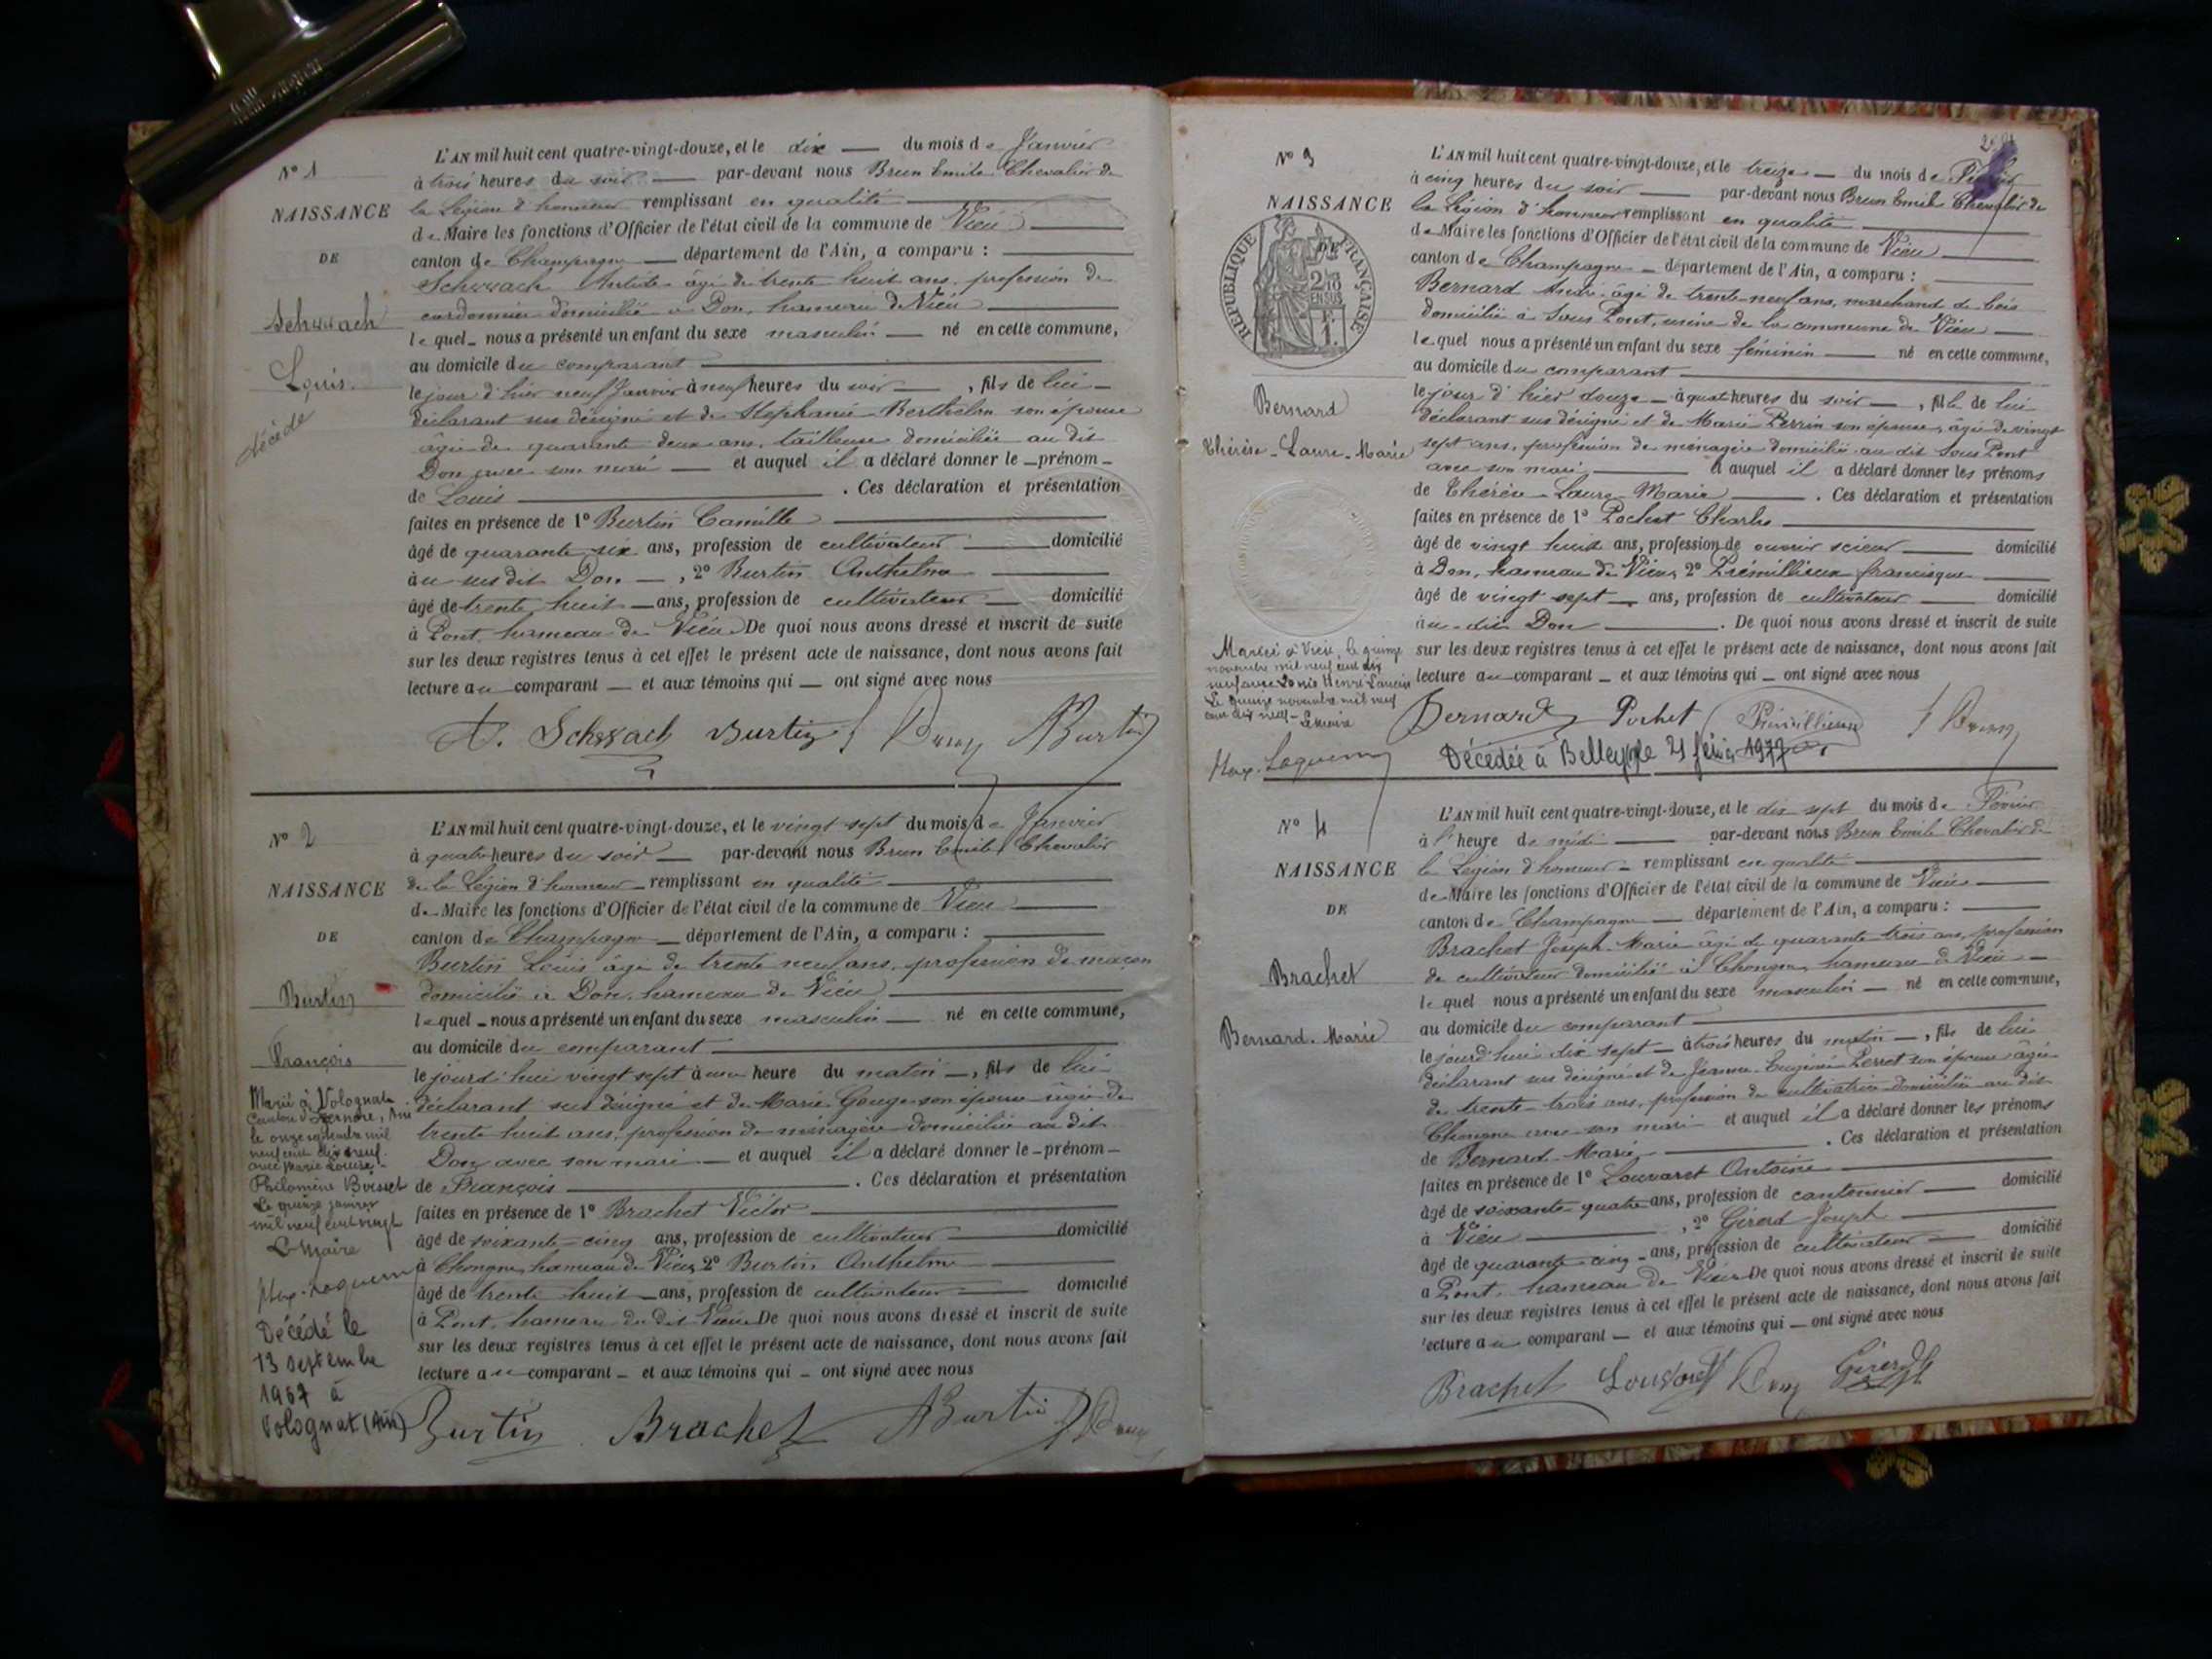 N° 1
NAISSANCE
DE
Schwach
Louis.
décédé
L'AN mil huit cent quatre-vingt-douze, et le dix — du mois de Janvier
à trois heures du soir — par-devant nous Brun Emile Chevalier de
la Légion d'honneur remplissant en qualité
de Maire les fonctions d'Officier de l'état civil de la commune de Vieu
canton de Champagne — département de l'Ain, a comparu :
Schwach Antide âgé de trente huit ans, profession de
cordonnier domicilié à Don, hameau de Vieu
lequel nous a présenté un enfant du sexe masculin — né en cette commune,
au domicile du comparant
le jour d'hier neuf Janvier à neuf heures du soir — , fils de lui
déclarant sus désigné et de Stéphanie Berthelin son épouse
âgée de quarante deux ans, tailleuse domiciliée au dit
Don avec son mari — et auquel il a déclaré donner le prénom
de Louis — . Ces déclaration et présentation
faites en présence de 1° Burtin Camille
âgé de quarante six ans, profession de cultivateur — domicilié
au sus dit Don — , 2° Burtin Anthelme
âgé de trente huit — ans, profession de cultivateur — domicilié
à Pont, hameau de Vieu De quoi nous avons dressé et inscrit de suite
sur les deux registres tenus à cet effet le présent acte de naissance, dont nous avons fait
lecture au comparant — et aux témoins qui — ont signé avec nous
A. Schwach Burtin E Brun ABurtin
N° 2
NAISSANCE
DE
Burtin
François
Marié à Volognat
Canton d'Izernore, Ain
le onze septembre mil
neuf cent dix neuf
avec Marie Louise
Philomène
Le quinze janvier
mil neuf cent vingt
Le Maire
Décédé le
13 septembre
1967 à
Volognat (Ain)
L'AN mil huit cent quatre-vingt-douze, et le vingt sept du mois de Janvier
à quatre heures du soir — par-devant nous Brun Emile Chevalier
de la Légion d'honneur remplissant en qualité
de Maire les fonctions d'Officier de l'état civil de la commune de Vieu
canton de Champagne — département de l'Ain, a comparu :
Burtin Louis âgé de trente neuf ans, profession de maçon
domicilié à Don, hameau de Vieu
lequel nous a présenté un enfant du sexe masculin — né en cette commune,
au domicile du comparant
le jourd'hui vingt sept à une heure du matin — , fils de lui
déclarant sus désigné et de Marie Gouge son épouse âgée de
trente huit ans, profession de ménagère domiciliée au dit
Don avec son mari — et auquel il a déclaré donner le prénom
de François — . Ces déclaration et présentation
faites en présence de 1° Brachet Victor
âgé de soixante-cinq ans, profession de cultivateur — domicilié
à Chongne, hameau de Vieu, 2° Burtin Anthelme
âgé de trente huit — ans, profession de cultivateur — domicilié
à Pont, hameau du dit Vieu De quoi nous avons dressé et inscrit de suite
sur les deux registres tenus à cet effet le présent acte de naissance, dont nous avons fait
lecture au comparant — et aux témoins qui — ont signé avec nous
Burtin Brachet ABurtin E Brun
N° 3
NAISSANCE
DE
REPUBLIQUE FRANÇAISE
2/10
EN SUS
1F
Bernard
Thérèse-Laure-Marie
Mariée à Vieu, le quinze
novembre mil neuf cent dix
neuf avec Louis Henri
Le quinze novembre mil neuf
cent dix neuf - Le maire
L'AN mil huit cent quatre-vingt-douze, et le treize — du mois de Février
à cinq heures du soir — par-devant nous Brun Emile Chevalier de
la Légion d'honneur remplissant en qualité
de Maire les fonctions d'Officier de l'état civil de la commune de Vieu
canton de Champagne — département de l'Ain, a comparu :
Bernard André âgé de trente-neuf ans, marchand de bois
domicilié à Sous Pont, usine de la commune de Vieu
lequel nous a présenté un enfant du sexe féminin — né en cette commune,
au domicile du comparant
le jour d'hier douze — à quatre heures du soir — , fille de lui
déclarant sus désigné et de Marie Perrin son épouse, âgée de vingt
sept ans, profession de ménagère domiciliée au dit Sous Pont
avec son mari — et auquel il a déclaré donner les prénoms
de Thérèse-Laure-Marie — . Ces déclaration et présentation
faites en présence de 1° Pochet Charles
âgé de vingt huit ans, profession de ouvrier scieur — domicilié
à Don, hameau de Vieu, 2° Prémillieux Francisque
âgé de vingt sept — ans, profession de cultivateur — domicilié
au dit Don — . De quoi nous avons dressé et inscrit de suite
sur les deux registres tenus à cet effet le présent acte de naissance, dont nous avons fait
lecture au comparant — et aux témoins qui — ont signé avec nous
Bernard Pochet Prémillieux E Brun
Décédée à Belley le 21 février 1977
N° 4
NAISSANCE
DE
Brachet
Bernard-Marie
L'AN mil huit cent quatre-vingt-douze, et le dix sept du mois de Février
à l'heure de midi — par-devant nous Brun Emile Chevalier de
la Légion d'honneur remplissant en qualité
de Maire les fonctions d'Officier de l'état civil de la commune de Vieu
canton de Champagne — département de l'Ain, a comparu :
Brachet Joseph-Marie âgé de quarante trois ans, profession
de cultivateur domicilié à Chongne, hameau de Vieu
lequel nous a présenté un enfant du sexe masculin — né en cette commune,
au domicile du comparant
le jourd'hui dix sept — à trois heures du matin — , fils de lui
déclarant sus désigné et de Jeanne-Eugénie Perret son épouse âgée
de trente-trois ans, profession de cultivatrice domiciliée au dit
Chongne avec son mari et auquel il a déclaré donner les prénoms
de Bernard-Marie — . Ces déclaration et présentation
faites en présence de 1° Louvaret Antoine
âgé de soixante-quatre ans, profession de cantonnier — domicilié
à Vieu — , 2° Girerd Joseph
âgé de quarante cinq — ans, profession de cultivateur — domicilié
à Pont, hameau de Vieu De quoi nous avons dressé et inscrit de suite
sur les deux registres tenus à cet effet le présent acte de naissance, dont nous avons fait
lecture au comparant — et aux témoins qui — ont signé avec nous
Brachet Louvaret Brun Girerd